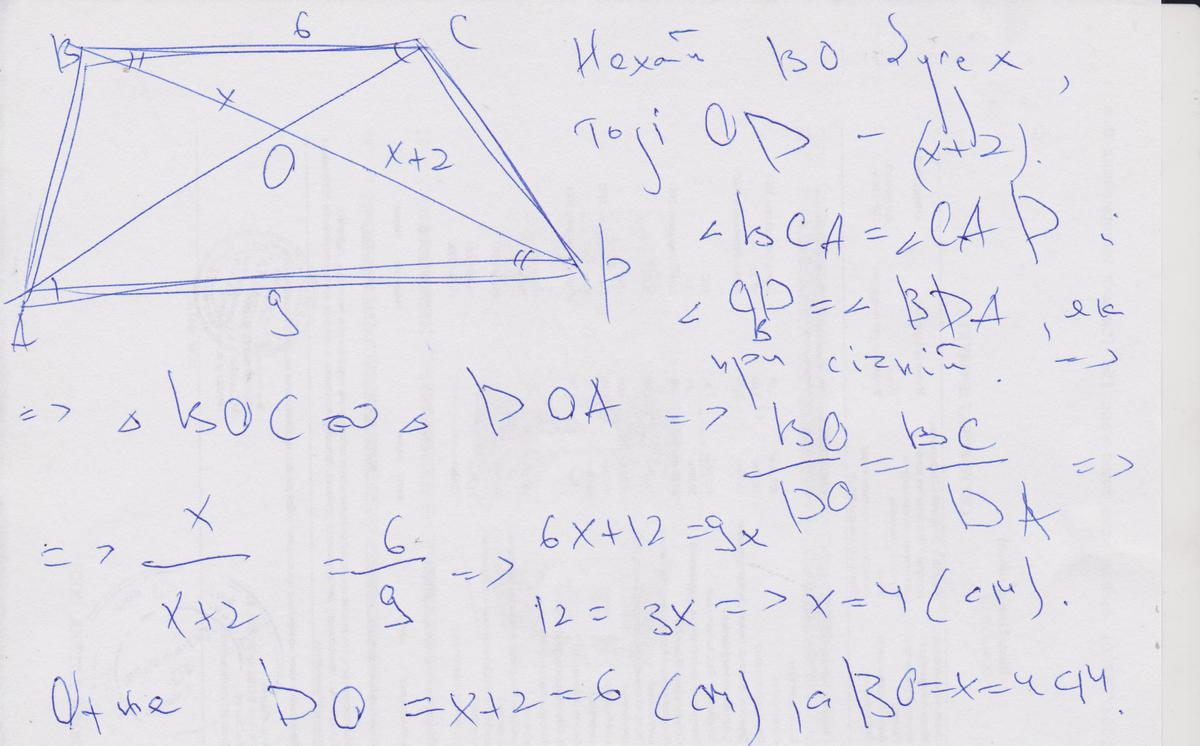 B 6 C
x
O
x+2
A 9 D
Нехай BO буде x,
тоді OD – (x+2).
∠BCA = ∠CAD і
∠CBD = ∠BDA, як
при січній. =>
=> △BOC ∾ △DOA => BO/DO = BC/DA =>
=> x/(x+2) = 6/9 => 6x+12 = 9x
12 = 3x => x = 4 (см).
Отже DO = x+2 = 6 (см), а BO = x = 4 см.